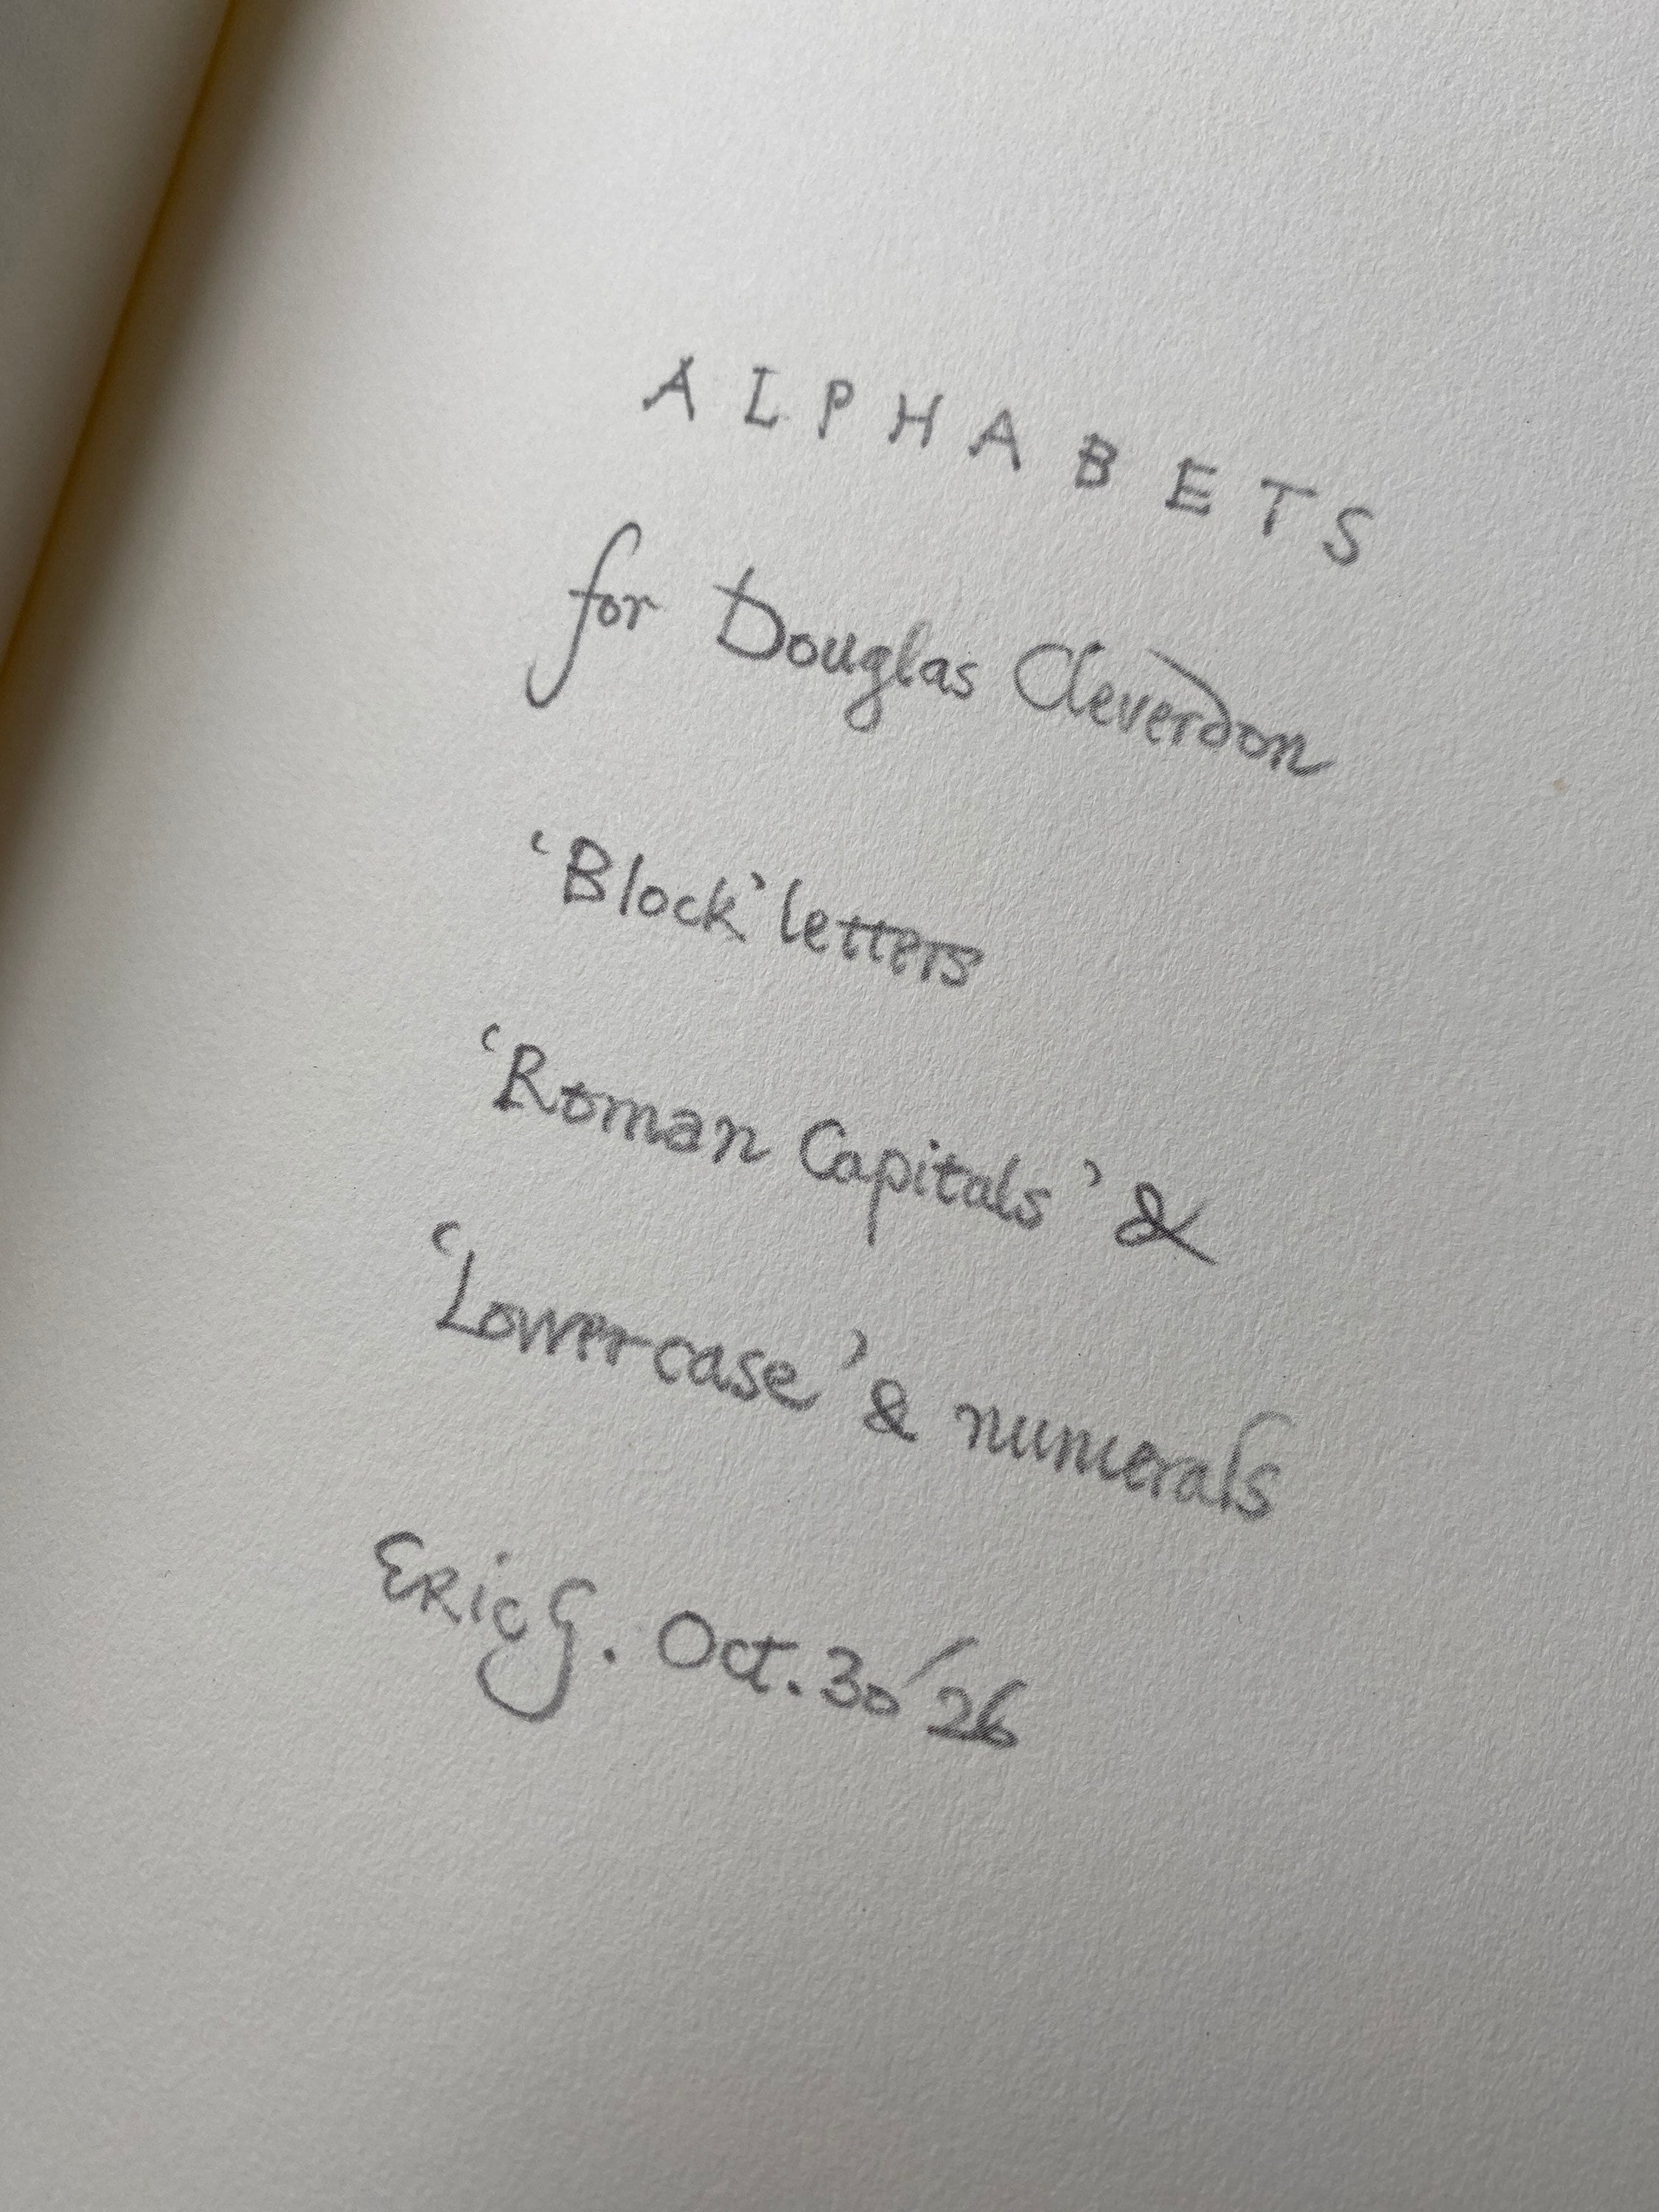 ALPHABETS
for Douglas Cleverdon
‘Block’ letters
‘Roman Capitals’ &
‘Lower-case’ & numerals
Eric G. Oct. 30/26